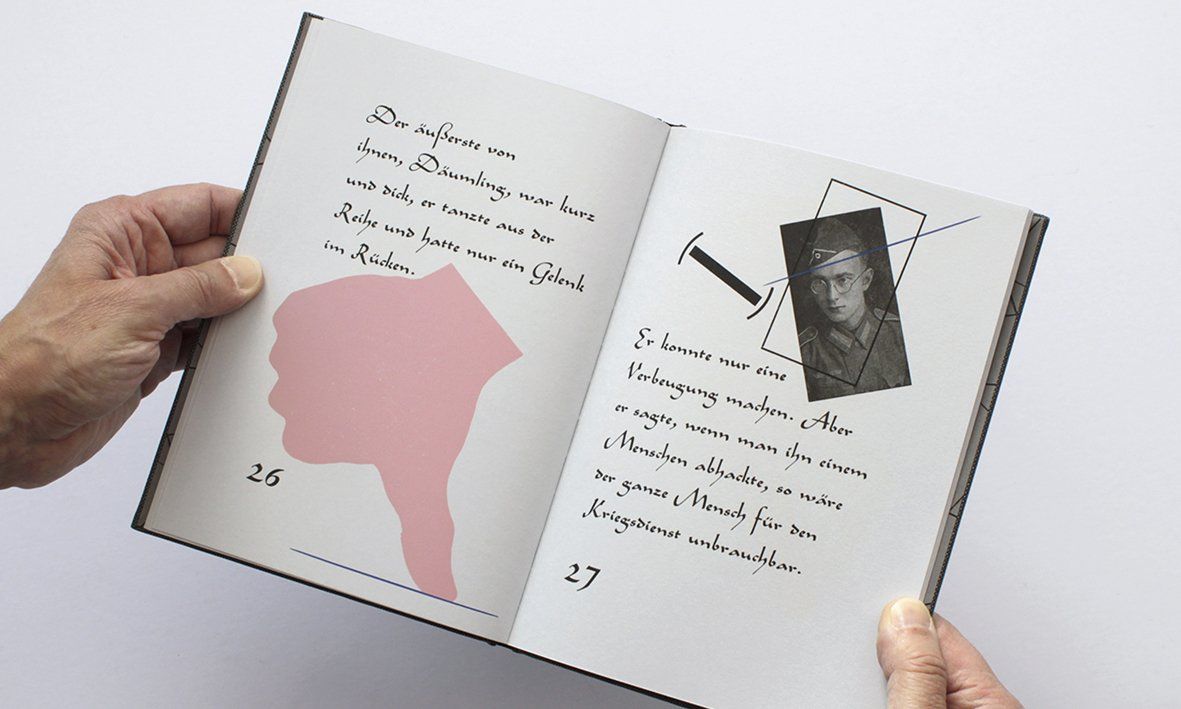 Der äußerste von
ihnen, Däumling, war kurz
und dick, er tanzte aus der
Reihe und hatte nur ein Gelenk
im Rücken.
26
Er konnte nur eine
Verbeugung machen. Aber
er sagte, wenn man ihn einem
Menschen abhackte, so wäre
der ganze Mensch für den
Kriegsdienst unbrauchbar.
27